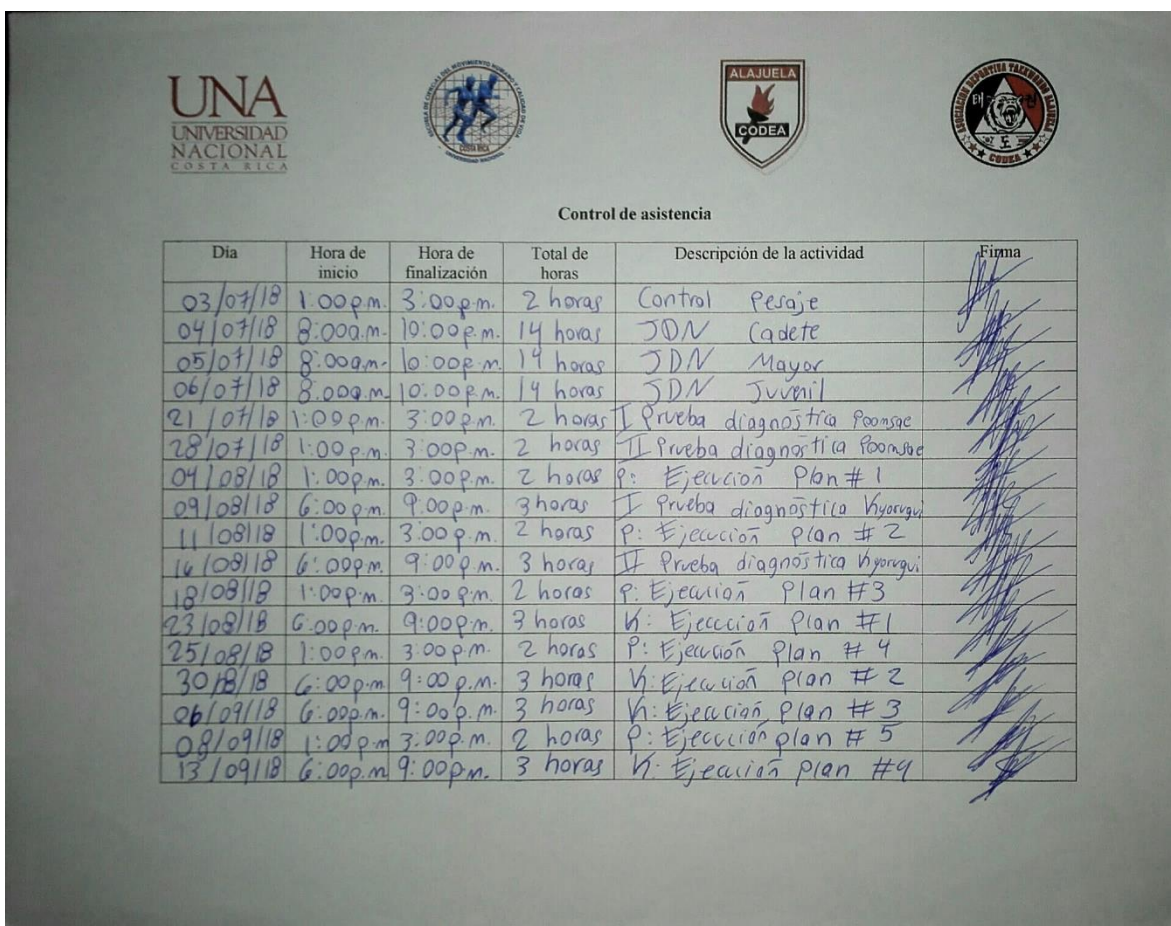 UNA
UNIVERSIDAD
NACIONAL
COSTA RICA
ESCUELA DE CIENCIAS DEL MOVIMIENTO HUMANO Y CALIDAD DE VIDA
COSTA RICA
UNIVERSIDAD NACIONAL
ALAJUELA
CODEA
ASOCIACION DEPORTIVA TAEKWONDO ALAJUELA
태 권
도
CODEA
Control de asistencia
Día Hora de inicio Hora de finalización Total de horas Descripción de la actividad Firma
03/07/18 1:00p.m. 3:00p.m. 2 horas Control Pesaje
04/07/18 8:00a.m. 10:00p.m. 14 horas JDN Cadete
05/07/18 8:00a.m. 10:00p.m. 14 horas JDN Mayor
06/07/18 8:00a.m. 10:00p.m. 14 horas JDN Juvenil
21/07/18 1:00p.m. 3:00p.m. 2 horas I Prueba diagnóstica Poomsae
28/07/18 1:00p.m. 3:00p.m. 2 horas II Prueba diagnóstica Poomsae
04/08/18 1:00p.m. 3:00p.m. 2 horas P: Ejecución Plan # 1
09/08/18 6:00p.m. 9:00p.m. 3 horas I Prueba diagnóstica Kyorugui
11/08/18 1:00p.m. 3:00p.m. 2 horas P: Ejecución Plan # 2
16/08/18 6:00p.m. 9:00p.m. 3 horas II Prueba diagnóstica Kyorugui
18/08/18 1:00p.m. 3:00p.m. 2 horas P: Ejecución Plan #3
23/08/18 6:00p.m. 9:00p.m. 3 horas K: Ejecución Plan #1
25/08/18 1:00p.m. 3:00p.m. 2 horas P: Ejecución Plan # 4
30/8/18 6:00p.m 9:00p.m. 3 horas K: Ejecución Plan # 2
06/09/18 6:00p.m. 9:00p.m. 3 horas K: Ejecución Plan # 3
08/09/18 1:00p.m 3:00p.m. 2 horas P: Ejecución plan # 5
13/09/18 6:00p.m 9:00p.m. 3 horas K: Ejecución plan #4